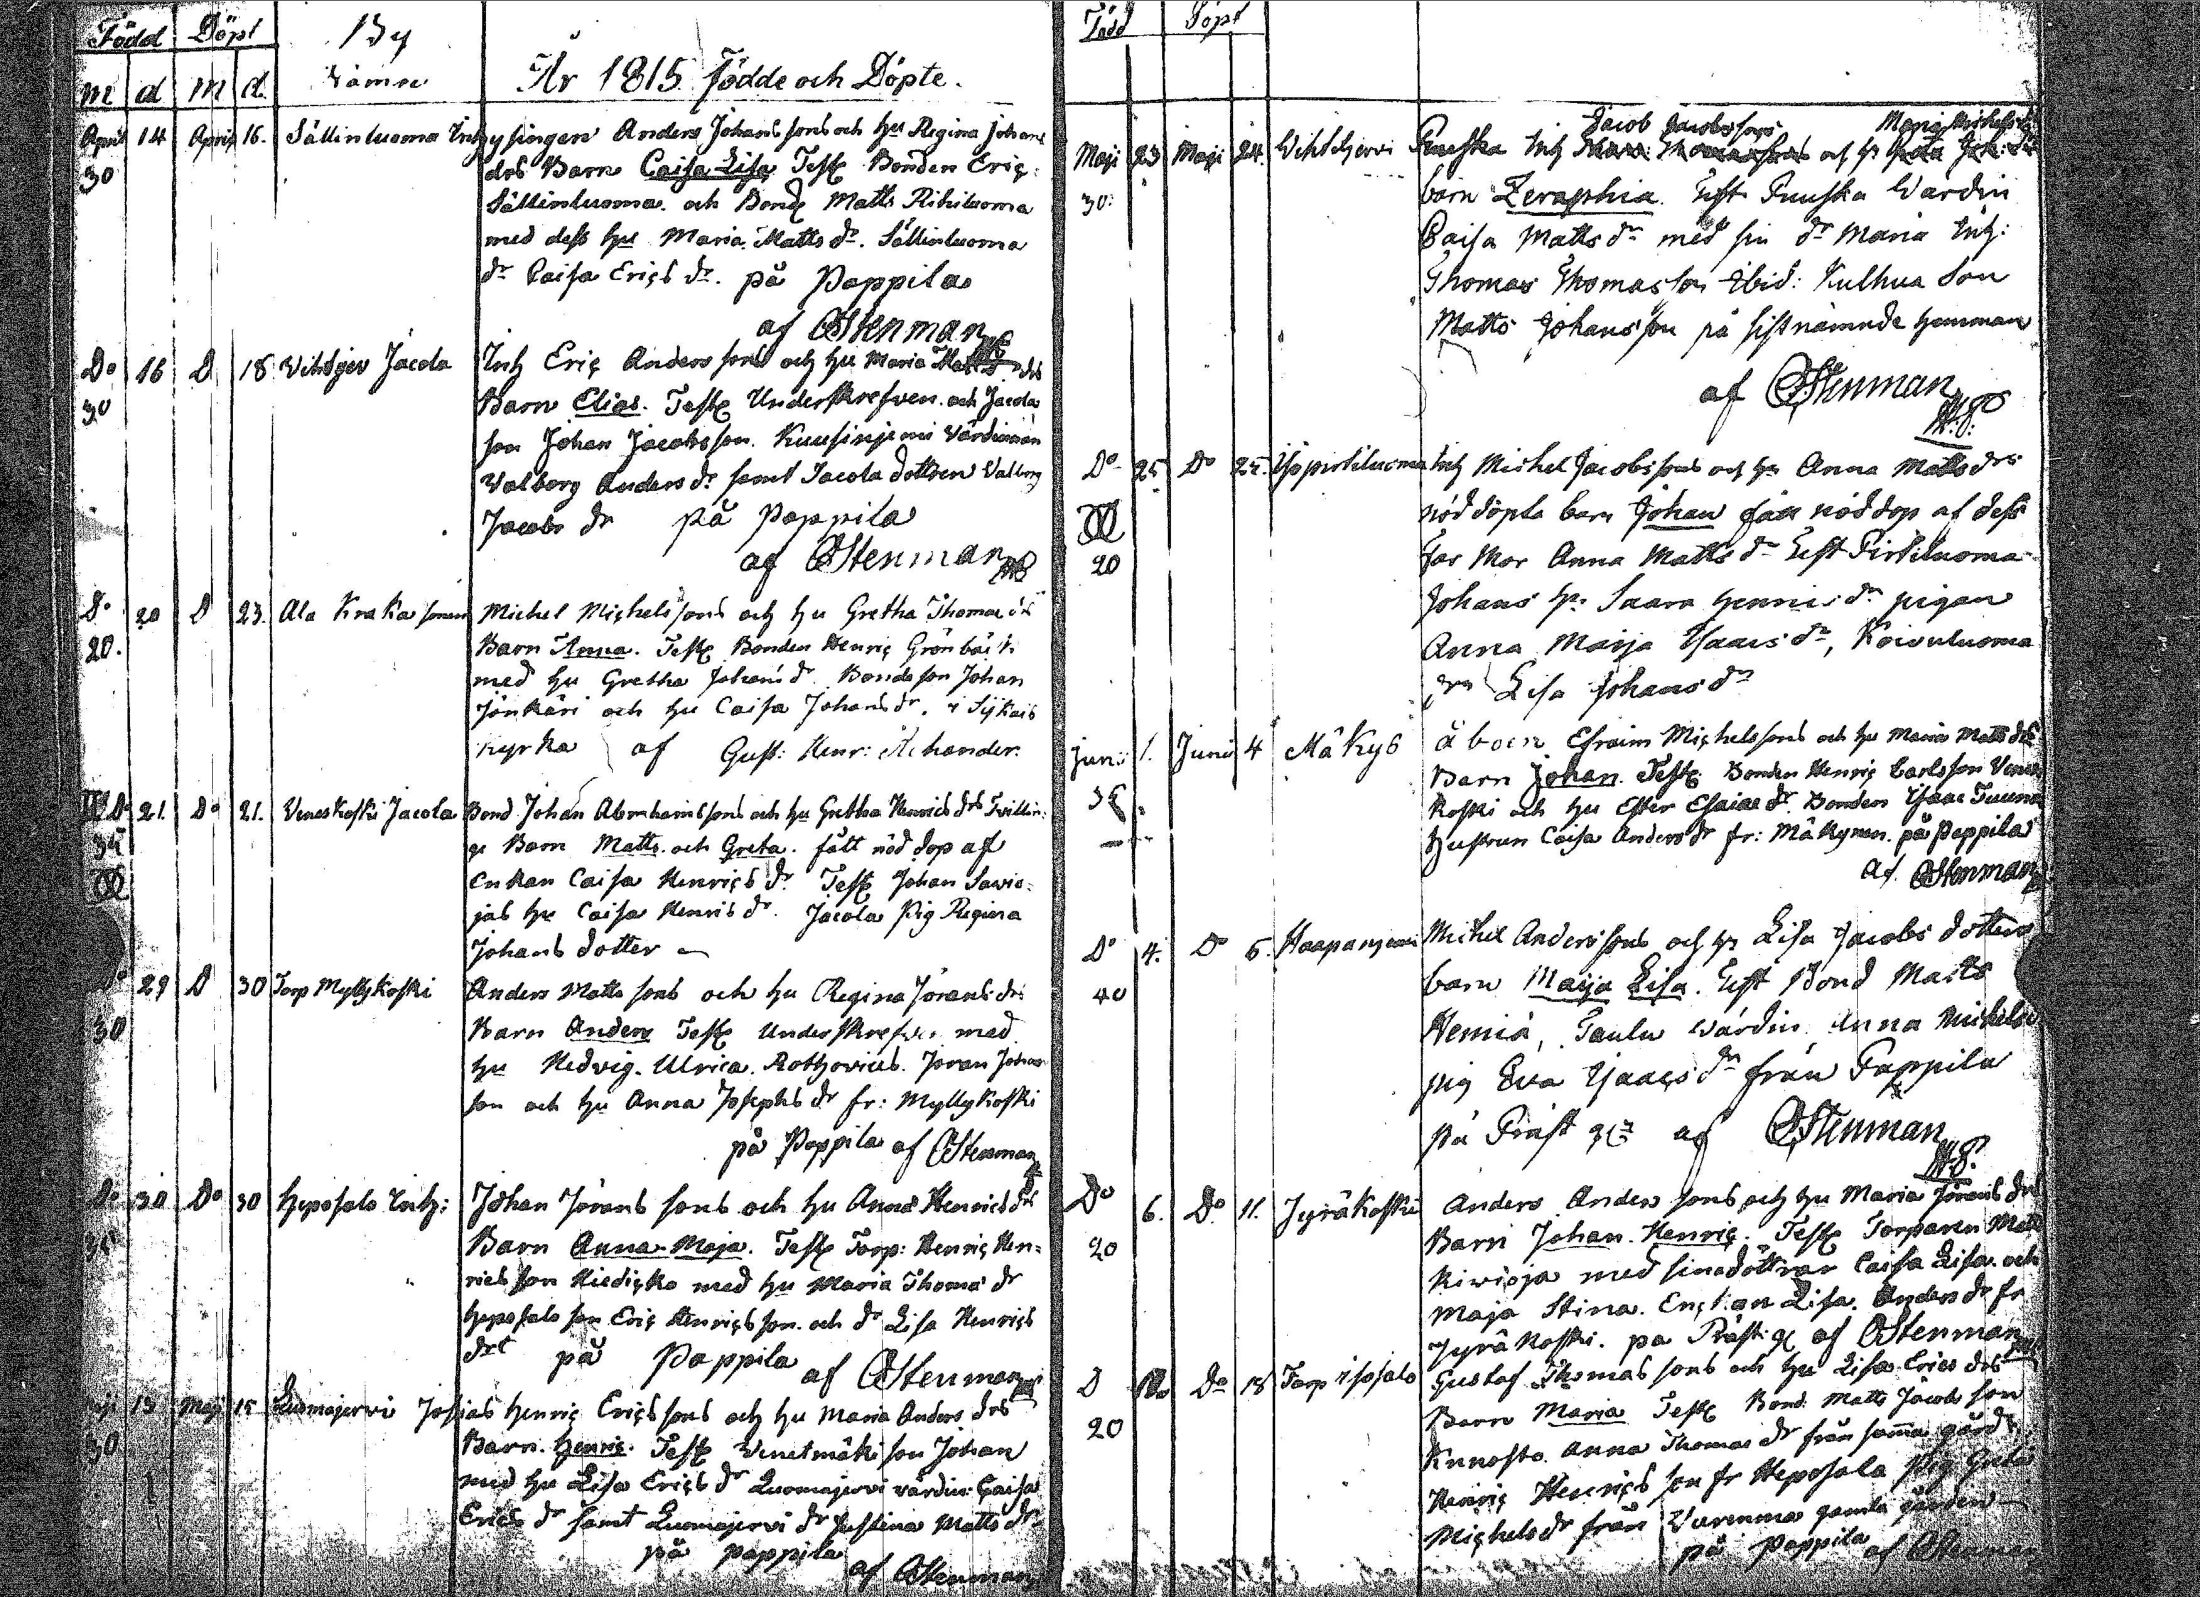 Född Döpt By
m d m d. Namn År 1815. födde och Döpte.
April 14 April 16. Sällinluoma Inhysingen Anders Johans sons och hu Regina Johans
30 drs Barn Caisa Lisa Test Bonden Eric
Sällinluoma och Bond Matts Rihiluoma
med dess hu Maria Matts dr. Sällinluoma
dr Caisa Erics dr. på Pappila
af OStenman
Do 16 D 18 Jäcola Inh Eric Anders sons och hu Maria drs
30 Barn Elias. Test Underskrefven och Jäcola
son Johan Jacobsson. Kuusinjemi Värdinnan
Valborg Anders dr samt Jacola dottren Valborg
Jacobs dr på Pappila
af OStenman
Do 20 D 23. Ala Kraka sonen Michel Michels sons och hu Gretha Thomæ drs
20. Barn Anna. Test Bonden Henric Grönbäck
med hu Gretha Johans dr. Bonde son Johan
Jönkäri och hu Caisa Johans dr. i Sijkais
kyrka af Gust: Henr:
Do 21. Do 21. Veneskoski Jäcola Bond Johan Abrahamssons och hu Gretha Henrics drs Tvillin:
ge Barn Matts och Greta. fått nöd dop af
Enkan Caisa Henrics dr. Test Johan Savio:
jas hu Caisa Henrics dr. Jäcola Pig Regina
Johans dotter
29 D 30 Torp Myllykoski Anders Matts sons och hu Regina Jörans drs
30 Barn Anders Test Underskrefven med
hu Hedvig. Ulrica. Rothovius. Jöran Johans
son och hu Anna Josephs dr fr: Myllykoski
på Pappila af OStenman
Do 30 Do 30 Heposalo Inh: Johan Jörans sons och hu Anna Henrics drs
Barn Anna-Maja. Test Torp: Henric Hen=
rics son Hiedicko med hu Maria Thomæ dr
Heposalo son Eric Henrics son och dr Lisa Henrics
drt på Pappila af OStenman
13 Maji 15 Luomajervi Josias Henric Erics sons och hu Maria Anders drs
30 Barn. Henric. Test Venetmäki son Johan
med hu Lisa Erics dr Luomajervi värdin: Caisa
Erics dr samt Luomajervi dr Justina Matts dr
på pappila
af OStenman
Född Döpt
Jacob Jacobssons Maria Michelsdr
Maji 23 Maji 24. Ruuska Inh och hu
30: barn Zeraphia. Test Ruuska Wärdin
Caisa Matts dr med sin dr Maria Inh:
Thomas Thomasson Ibid: Kulhua Son
Matts Johansson på sistnämnde hemman
af OStenman
Do 25 Do 25. Inh Michel Jacobs sons och hu Anna Matts drs
nöddöpta barn Johan fått nöddop af dess
20 Far Mor Anna Matts dr Test Pirtiluoma
Johans hu Saara Henrics dr pigan
Anna Maija Isaacs dr, Koivuluoma
Lisa Johans dr
Juni 1. Junii 4 Mäkys åboen Efraim Michels sons och hu Maria Matts drs
Barn Johan. Test. Bonden Henric Carlsson Venes
koski och hu Ester Esaiæ dr. Bonden Isaac Tuuna
Hustrun Caisa Anders dr fr: Mäkynen. på Pappila
af. OStenman
Do 4. Do 6. Haapanjemi Michel Anders sons och hu Lisa Jacobs dotters
40 barn Maija Lisa. Test Bond Matts
Hemiä, Taulu wärdin Anna Michels
pig Eva Isaacs dr från Pappila
på Präst af OStenman
Do 6. Do 11. Jyräkoski Anders Anders sons och hu Maria Jörans drs
20 Barn Johan Henric. Test Torparen Matts
Kivioja med sina döttrar Caisa Lisa och
Maja Stina. Enkan Lisa. Anders dr fr
Jyräkoski. på Präst: af OStenman
D Do 18 Torp isosalo Gustaf Thomas sons och hu Lisa Erics drs
20 Barn Maria Test Bond. Matts Jacobs son
Kunosto. Anna Thomas dr från samma gård
Henric Henrics son fr Heposala Pig Greta
Michels dr från Wuremma gamla gården
på Pappila af OStenman